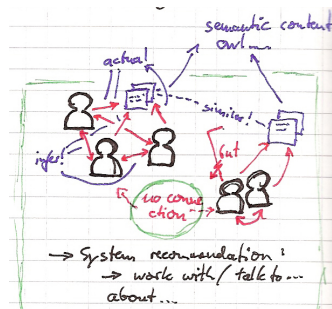 semantic content
out...
actual
similar!
infer!
but
no conne
ction
→ System recommendation:
→ work with/talk to...
about...